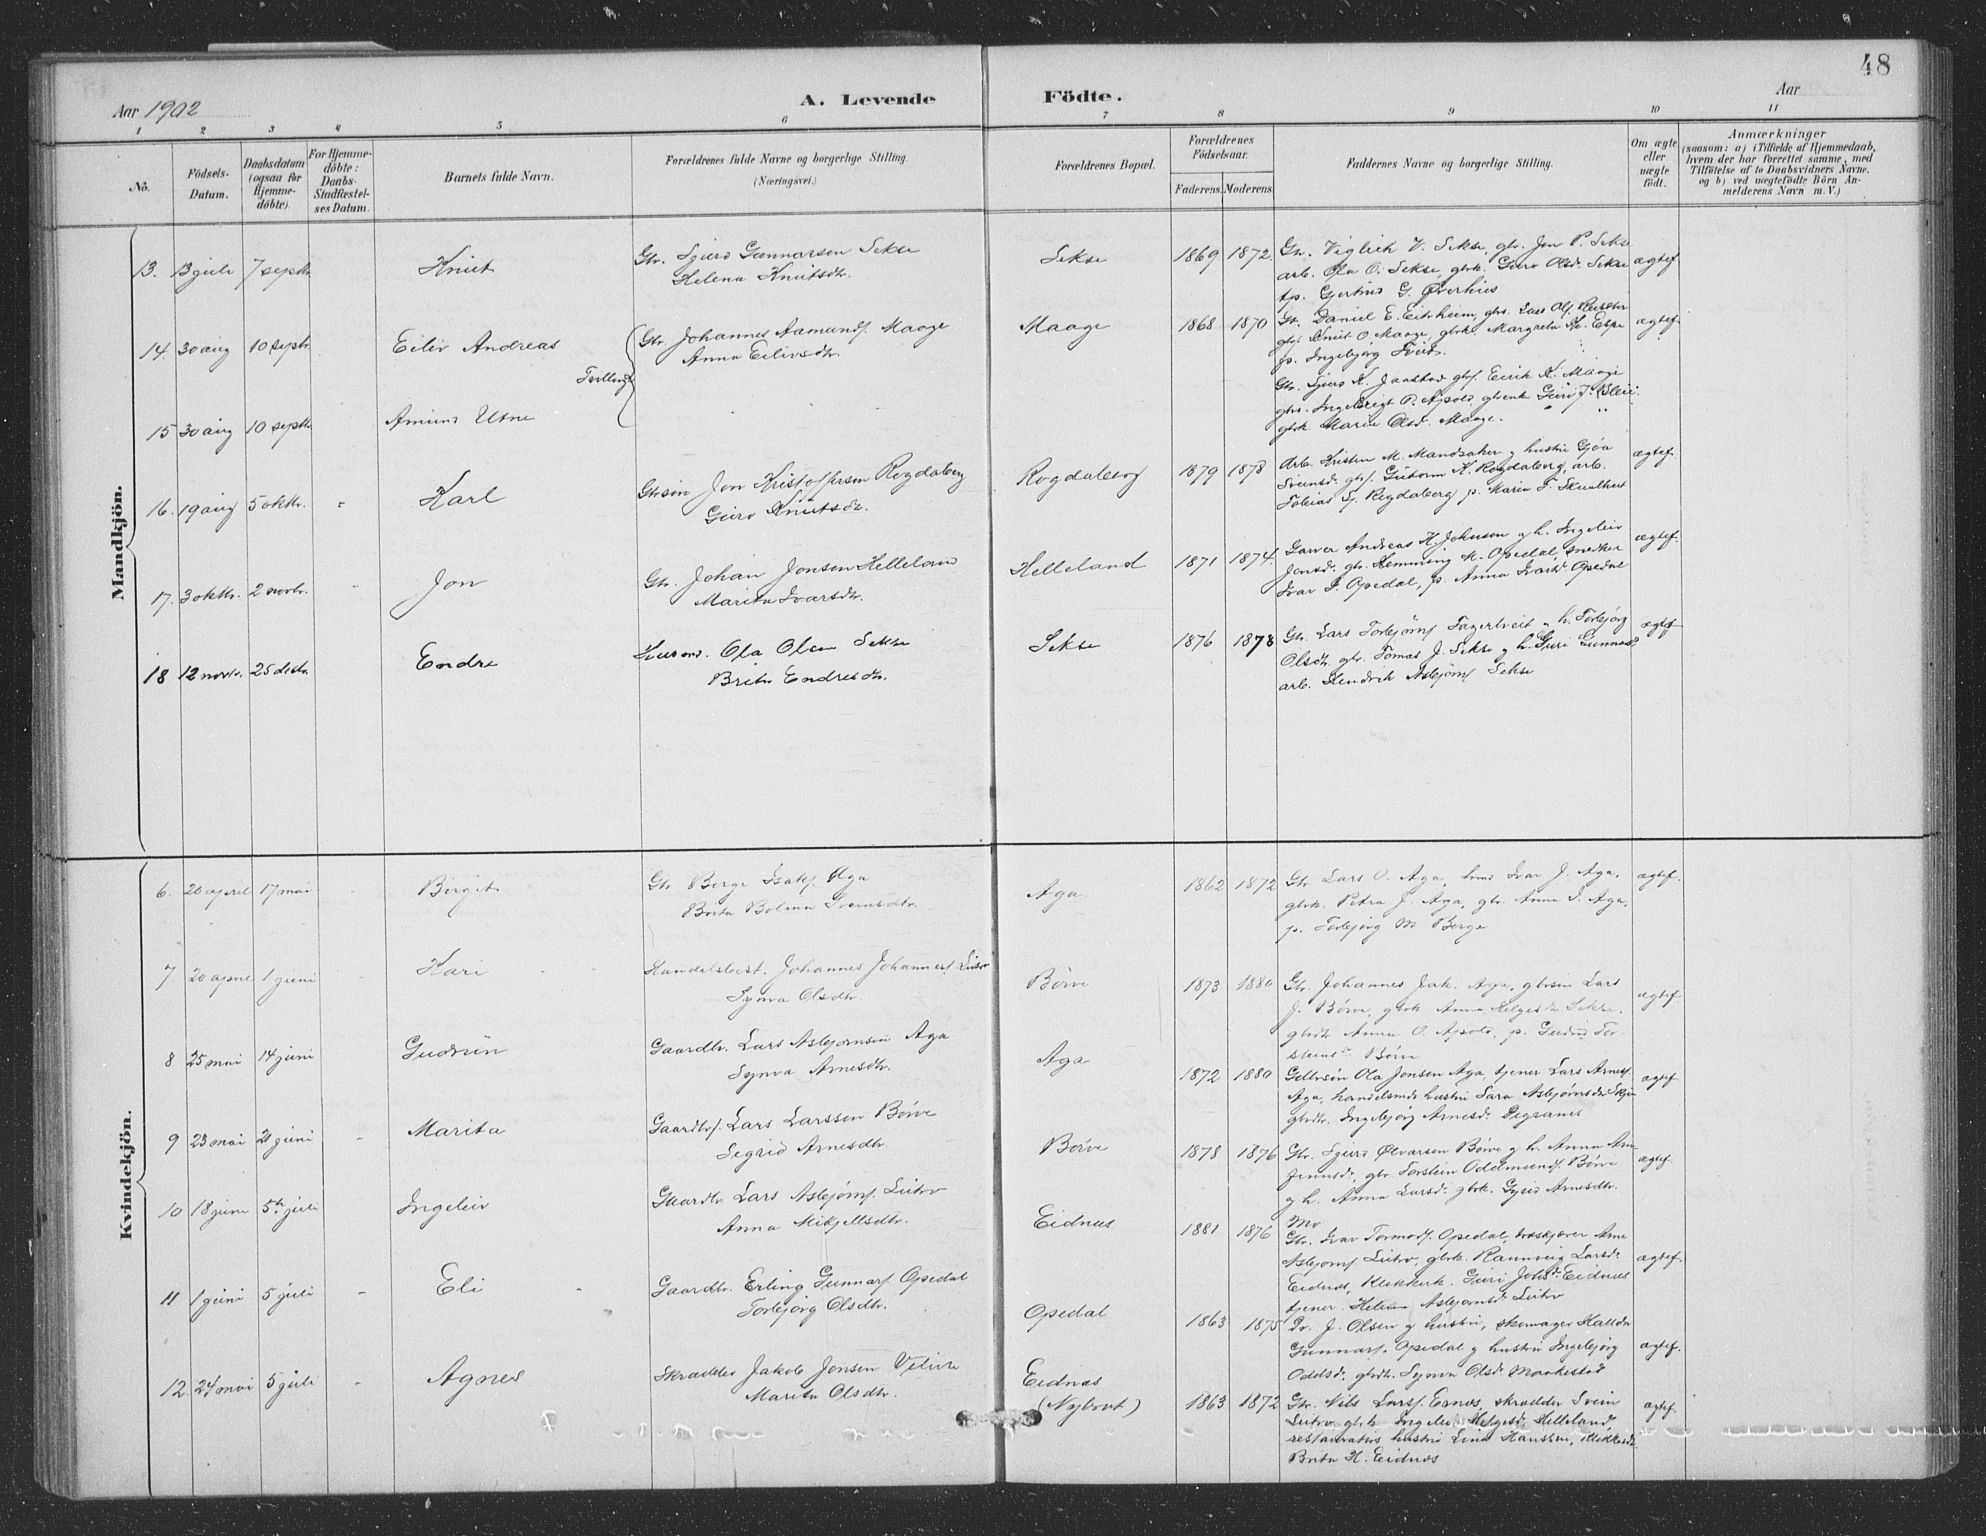 48
Aar 1902
A. Levende
Födte.
Aar
1 2 3 4 5 6 7 8 9 10 11
No.
Födsels-
Datum.
Daabsdatum
(ogsaa for
Hjemme-
döbte).
For Hjemme-
döbte:
Daabs-
Stadfæstel-
ses Datum.
Barnets fulde Navn.
Forældrenes fulde Navne og borgerlige Stilling.
(Næringsvei.)
Forældrenes Bopæl.
Forældrenes
Födselsaar.
Faderens. Moderens.
Faddernes Navne og borgerlige Stilling.
Om ægte
eller
uægte
födt.
Anmærkninger
(saasom: a) i Tilfælde af Hjemmedaab,
hvem der har forrettet samme, med
Tilföielse af to Daabsvidners Navne,
og b) ved uægtefödte Börn An-
melderens Navn m. V.)
Mandkjön.
13. 13 juli 7 septr. Knut
Gbr. Sjurd Gunnarsen Sekse
Helena Knutsdtr.
Sekse 1869 1872.
Gbr. Viglich V. Sekse, gbr. Jon P. Sekse
arb. Ola O. Sekse, gbrk. Guro Olsdr. Sekse
p. Gjertrud G.
ægtef.
14. 30 aug 10 septr. Eiliv Andreas
Gbr. Johannes Aamunds. Maage
Anna Eilivsdtr.
Maage 1868 1870
Gbr. Daniel E. Eitrheim, gbs. Lars Ols.
gbs. Knut O. Maage, gbrk. Margreta Espe
p. Ingebjørg Tveit.
ægtef.
Tvilling
15 30 aug 10 septr. Amund Utne
Gbr. Sjurd K. Jaastad gbs. Eirik K. Maage
gbs. Ingebrigt P. Apold, gbrenke Guro J. Bleie
gbrk. Maria Olsd. Maage.
16. 19 aug 5 oktr. Karl
Gbrsøn Jon Kristoffersen Rogdaberg
Guro Knutsdtr.
Rogdaberg 1879 1878
Arb. Kristen M. Mandsaker og hustru Gjøa
Svensd. gbs. Guttorm K. Rogdaberg, arb.
Tobias Sj. Rogdaberg p. Maria T.
ægtef.
17. 3 oktr. 2 novbr. Jon
Gbr. Johan Jonsen Helleland
Marita Ivarsdtr.
Helleland 1871 1874.
Garver Andreas H. Johnsen og h. Ingeleiv
Jonsd. gbr. Hemming M. Opedal, snedker
Ivar I. Opedal, p. Anna Ivarsd. Opedal
ægtef.
18 12 novbr. 25 decbr. Endre
Husmd. Ola Olsen Sekse
Brita Endresdtr.
Sekse 1876 1878
Gbr. Lars Torbjørns. Fagertveit og h. Torbjørg
Olsdtr. gbr. Tomas J. Sekse og h. Guri Gunnarsd.
arb. Hendrik Asbjørns. Sekse
ægtef.
Kvindekjön.
6. 20 april 17 mai Birgit
Gbr. Berge Isaks. Aga
Brita Bolina Sveinsdtr.
Aga. 1862 1872
Gbr. Lars O. Aga, Ivar J. Aga,
gbrk. Petra J. Aga, gbr. Anna I. Aga,
p. Torbjørg M. Berge
ægtef.
7 20 april 1 juni Kari
Handelsbest. Johannes Johanness. Lutro
Synva Olsdtr.
Børve 1873 1880
Gbr. Johannes Jak. Aga, gbrsøn Lars
J. Børve, gbrk. Anna Helgesdtr. Sekse,
gbrdtr. Anna O. Apold, p. Gudrid Tor-
steinsd. Børve
ægtef.
8 25 mai 14 juni Gudrun
Gaardbr. Lars Asbjørnsen Aga
Synva Arnesdtr.
Aga 1872 1880
Gdbrsøn Ola Jonsen Aga, tjener Lars Arnes.
Aga, handelsmds hustru Sara Asbjørnsdtr.
gbrdtr. Ingebjørg Arnesdr. Digranes
ægtef.
9 23 mai 21 juni Marita
Gaardbr. Lars Larssen Børve
Sigrid Arnesdtr.
Børve 1878 1876
Gbr. Sjurd Ølversen Børve og h. Anna Arn-
finnsd., gbr. Torstein Odelmunds. Børve
og h. Anna Larsd. gbrk. Gyrid Arnesdtr.
Mo
ægtef.
10 18 juni 5te juli Ingeleiv
Gaardbr. Lars Asbjørns. Lutro
Anna Mikjellsdtr.
Eidnes 1881 1876
Gbr. Ivar Tormods. Opedal, Arne
Asbjørns. Lutro, gbrk. Rannveig Larsd.
Eidnes, Klokkerk. Guri Johsd. Eidnes
tjener Helena Asbjørnsd. Lutro
ægtef.
11 1 juni 5 juli Eli
Gaardbr. Erling Gunnars. Opedal
Torbjørg Olsdtr.
Opedal 1863 1875
Pr. J. Olsen og hustru, skomager Halldor
Gunnars. Opedal og hustru Ingebjørg
Oddsd. gbrdtr. Synva Olsd. Maakestad
ægtef.
12. 24 mai 5 juli Agnes
Skrædder Jakob Jonsen Velure
Marita Olsdtr.
Eidnes
(Nybrot) 1863 1872
Gbr. Nils Larss. Ernes, skrædder Svein
Lutro, gbrk. Ingeleiv Helgesd. Helleland,
restauratørs hustru Lina Hanssen,
Brita H. Eidnes
ægtef.